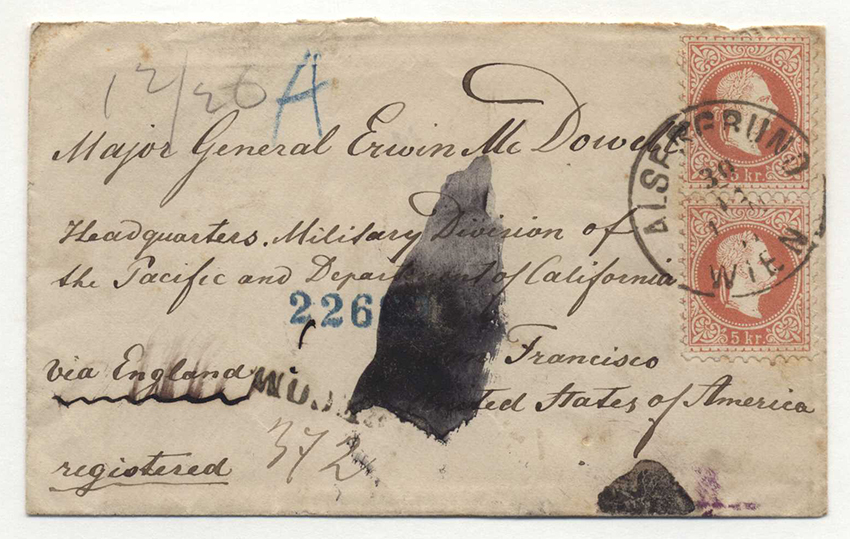 12/26 A
Major General Erwin Mc Dowell
Headquarters. Military Division of
the Pacific and Department of California
226
San Francisco
via England
United States of America
372
registered
ALSERGRUND
30
WIEN
5 kr.
5 kr.